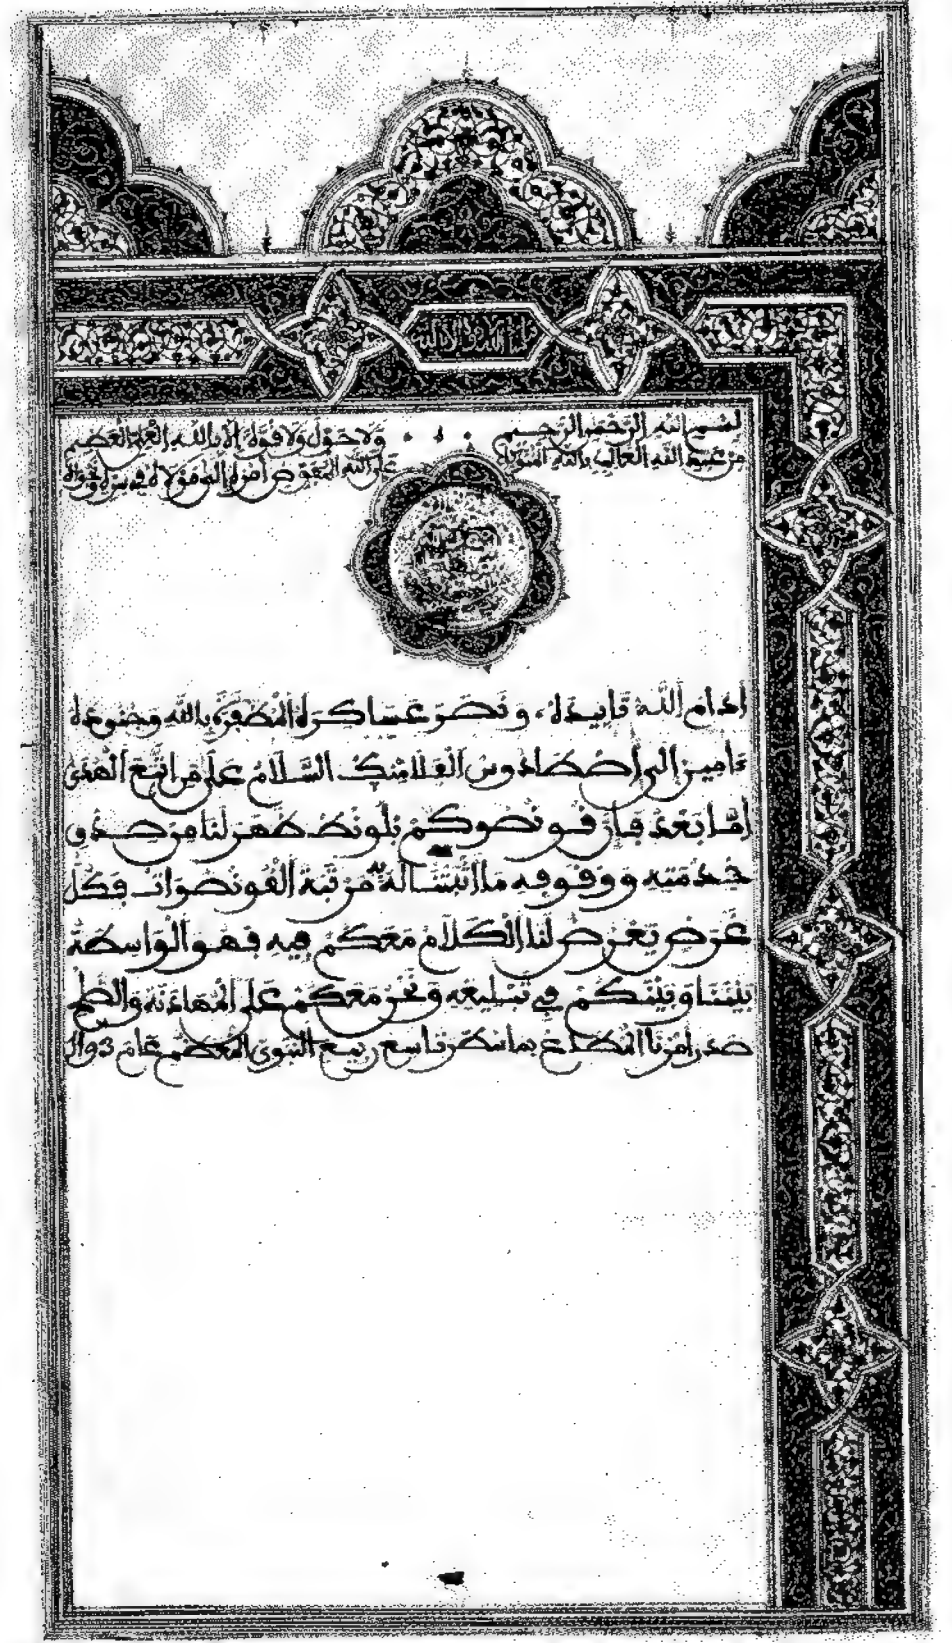 بسم الله الرحمن الرحيم ولا حول ولا قوة إلا بالله العلي العظيم
من عبد الله الغالب بالله المتوكل على الله المفوض أمره إلى مولاه في سره ونجواه
أدام الله تاييده، ونصر عساكره المظفرة بالله وجنوده
ءامين إلى إصطادوس الفلامنك السلام على من اتبع الهدى
أما بعد فإن قونصوكم بلونط ظهر لنا من صدق
خدمته ووقوفه ما أثبتنا له مرتبة القونصوات فكل
غرض يعرض لنا الكلام معكم فيه فهو الواسطة
بيننا وبينكم في تبليغه ونحن معكم على المهادنة والصلح
صدر أمرنا المطاع بمراكش تاسع ربيع النبوي المعظم عام